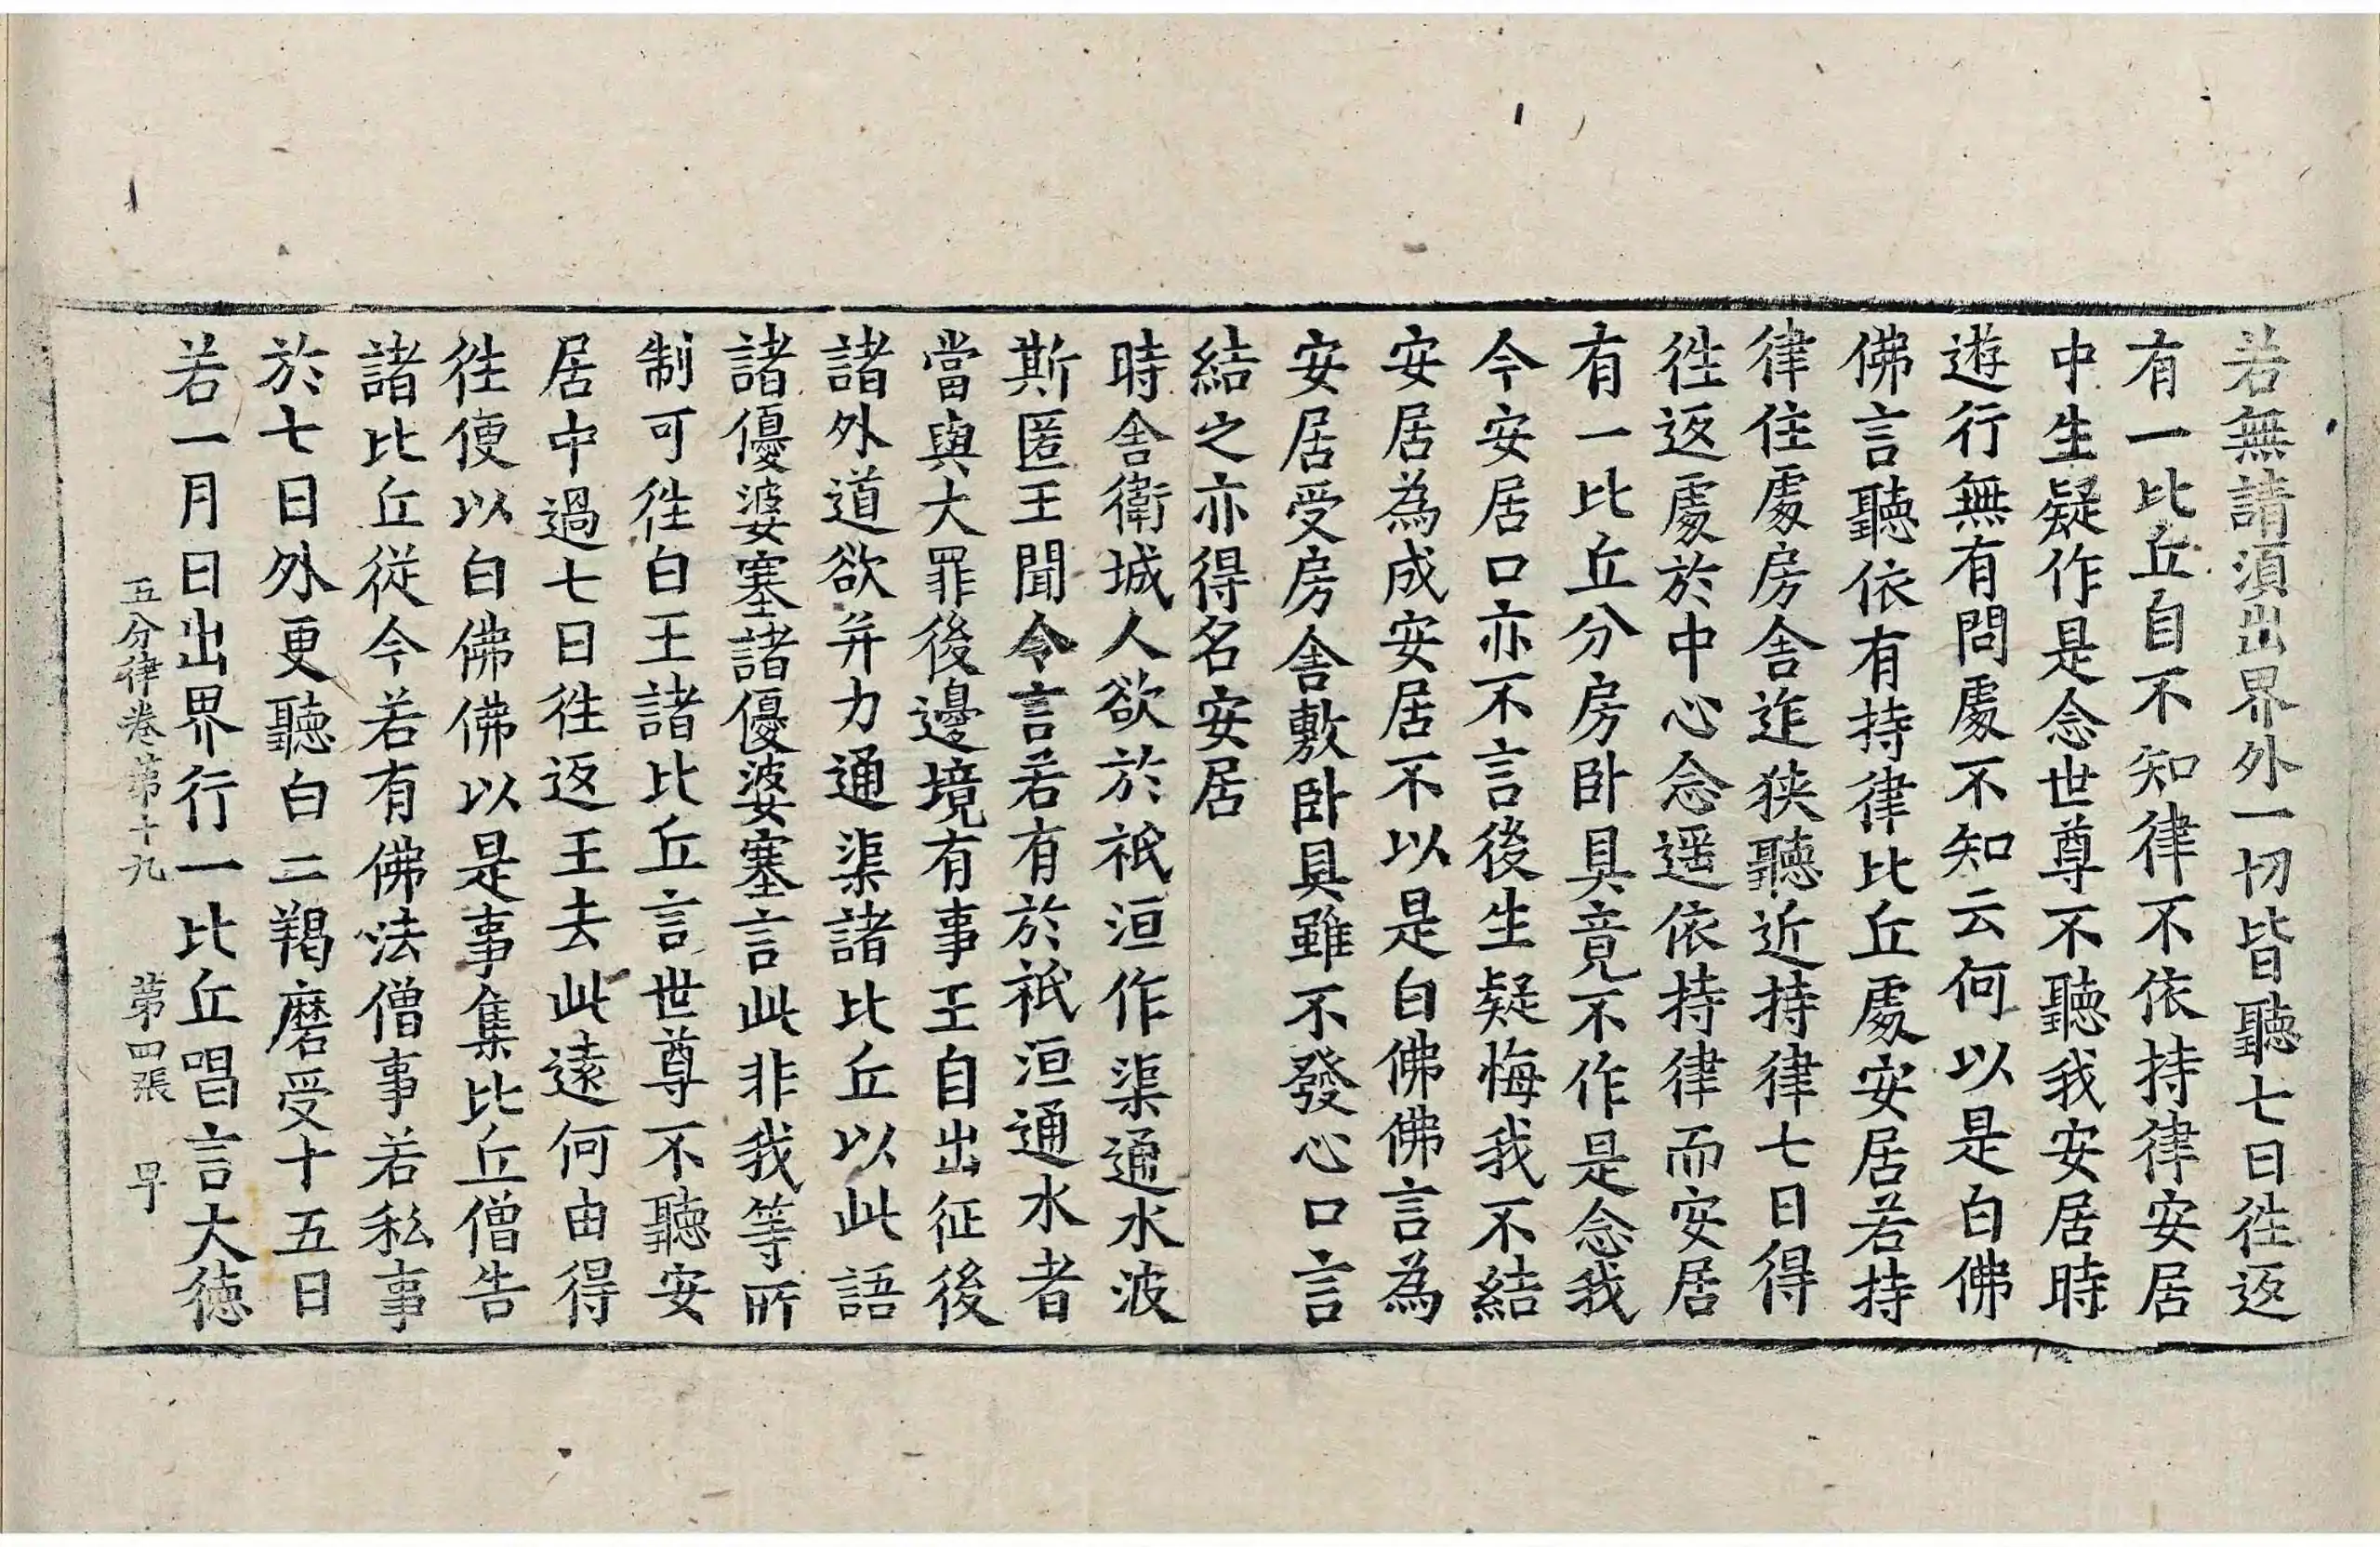 若無請須出界外一切皆聽七日往返
有一比丘自不知律不依持律安居
中生疑作是念世尊不聽我安居時
遊行無有問處不知云何以是白佛
佛言聽依有持律比丘處安居若持
律住處房舍迮狹聽近持律七日得
往返處於中心念遥依持律而安居
有一比丘分房卧具竟不作是念我
今安居口亦不言後生疑悔我不結
安居為成安居不以是白佛佛言為
安居受房舍敷卧具雖不發心口言
結之亦得名安居
時舍衛城人欲於祇洹作渠通水波
斯匿王聞令言若有於祇洹通水者
當與大罪後邊境有事王自出征後
諸外道欲并力通渠諸比丘以此語
諸優婆塞諸優婆塞言此非我等所
制可往白王諸比丘言世尊不聽安
居中過七日往返王去此遠何由得
往便以白佛佛以是事集比丘僧告
諸比丘從今若有佛法僧事若私事
於七日外更聽白二羯磨受十五日
若一月日出界行一比丘唱言大德
五分律卷第十九 第四張 早